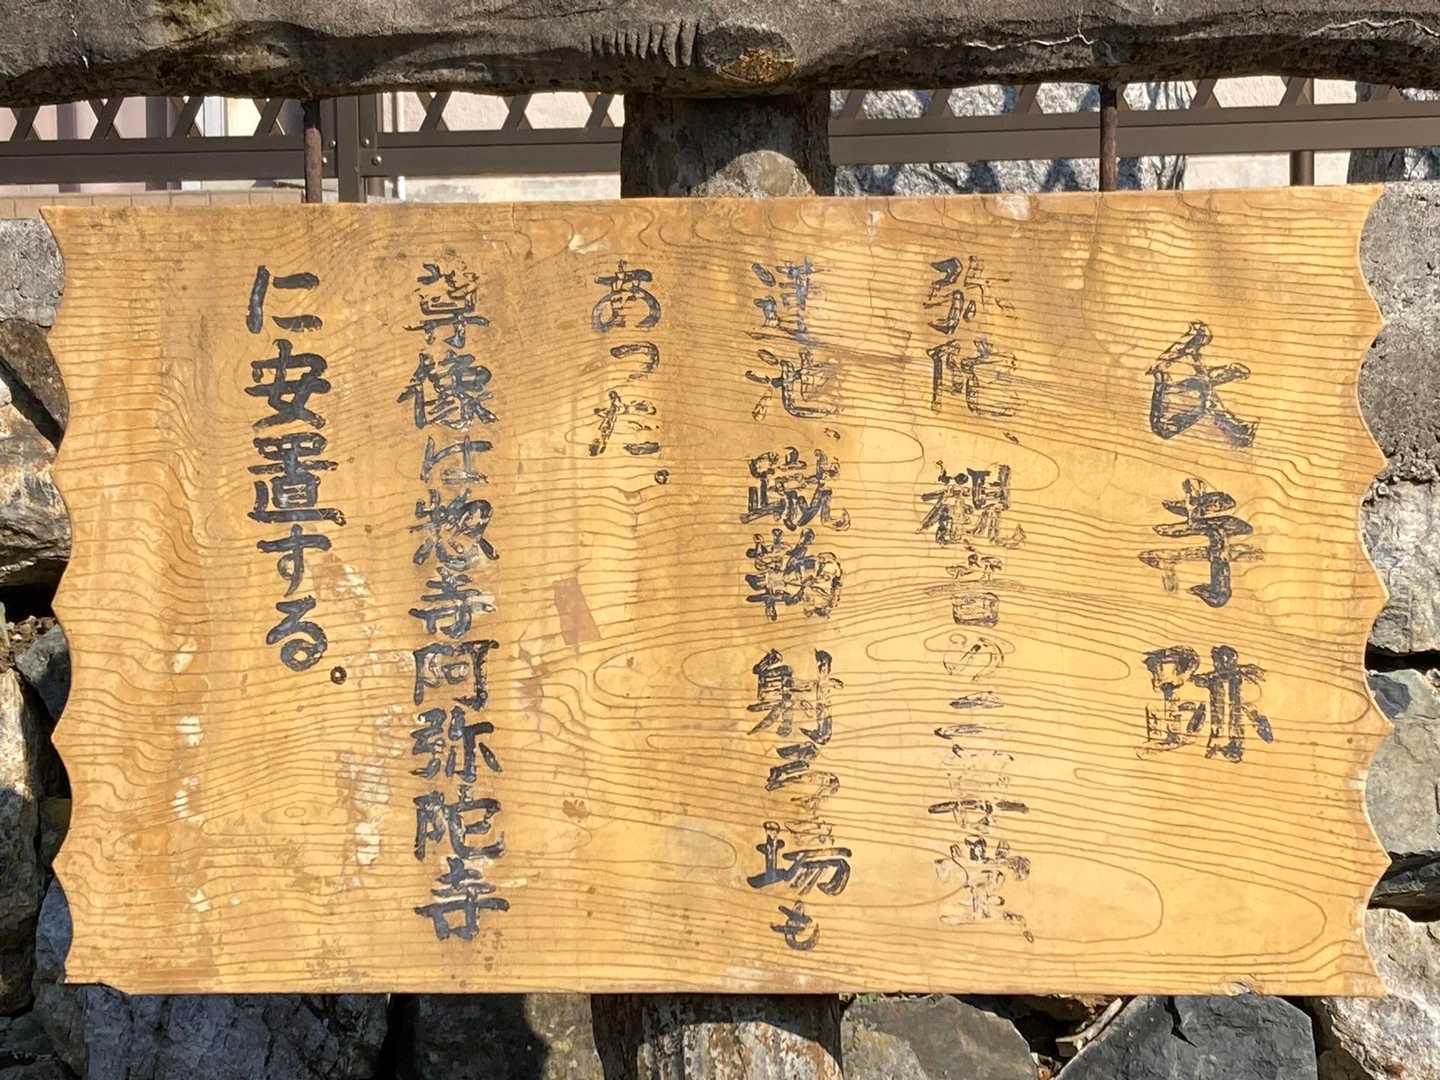 氏寺跡
弥陀、観音の二寺堂。
蓮池、蹴鞠、射弓場も
あった。
尊像は惣寺阿弥陀寺
に安置する。